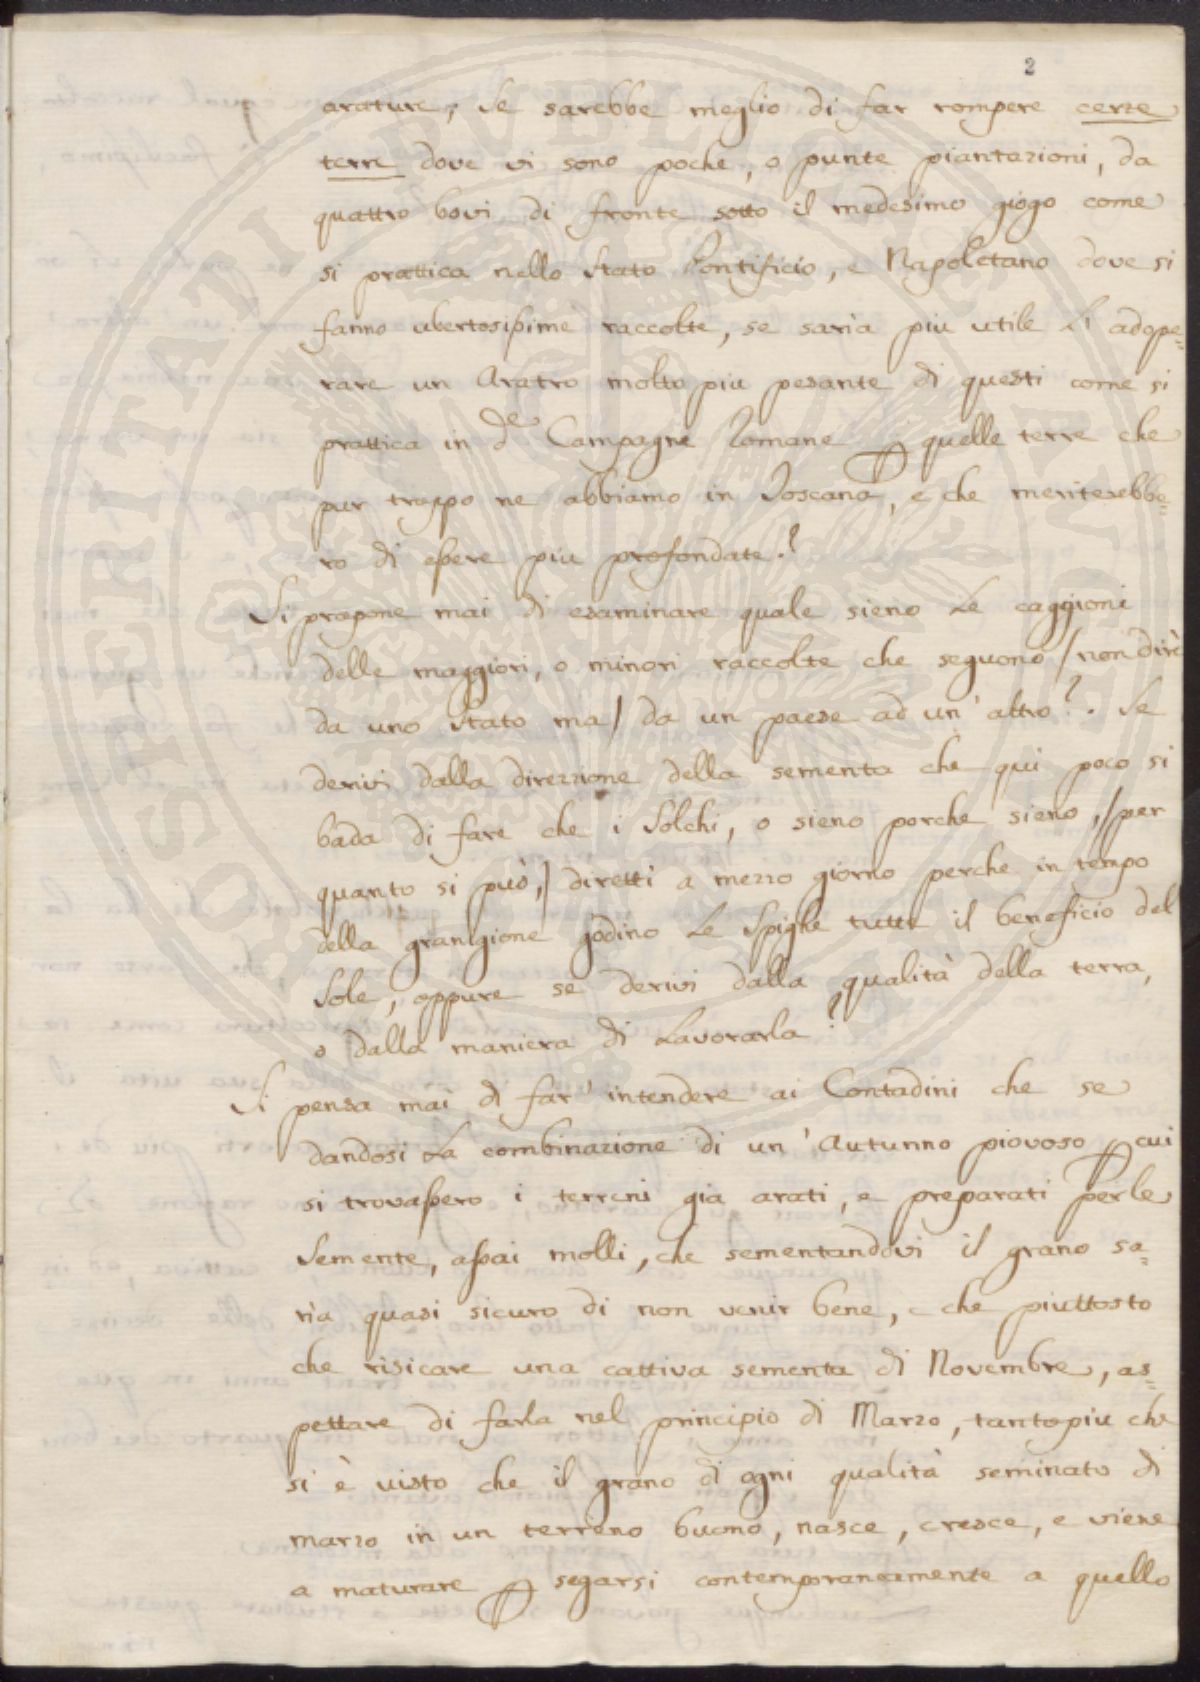 2
arature, se sarebbe meglio di far rompere certe
terre dove vi sono poche, o punte piantazioni, da
quattro bovi di fronte sotto il medesimo giogo come
si prattica nello Stato Pontificio, e Napoletano dove si
fanno ubertosissime raccolte, se saria piu utile L'adope=
rare un Aratro molto piu pesante di questi come si
prattica in d.e Campagne Romane p quelle terre che
pur troppo ne abbiamo in Toscana, e che meriterebbe=
ro di essere piu profondate.?
Si propone mai di esaminare quale sieno Le caggioni
delle maggiori, o minori raccolte che seguono /non dirè
da uno Stato ma/ da un paese ad un' altro?. Se
derivi dalla direzzione della sementa che qui poco si
bada di fare che i Solchi, o sieno porche sieno, /per
quanto si può,/ diretti a mezzo giorno perche in tempo
della granigione godino Le Spighe tutte il beneficio del
Sole, oppure se derivi dalla qualità della terra,
o dalla maniera di Lavorarla?
Si pensa mai di far' intendere ai Contadini che se
dandosi La combinazione di un' Autunno piovoso p cui
si trovassero i terreni gia arati, e preparati per le
Semente, assai molli, che sementandovi il grano sa=
ria quasi sicuro di non venir bene, e che piuttosto
che risicare una cattiva sementa di Novembre, as=
pettare di farla nel principio di Marzo, tanto piu che
si è visto che il grano di ogni qualità seminato di
marzo in un terreno buono, nasce, cresce, e viene
a maturare p segarsi contemporaneamente a quello
PROSPERITATI PUBLICAE AUGENDAE